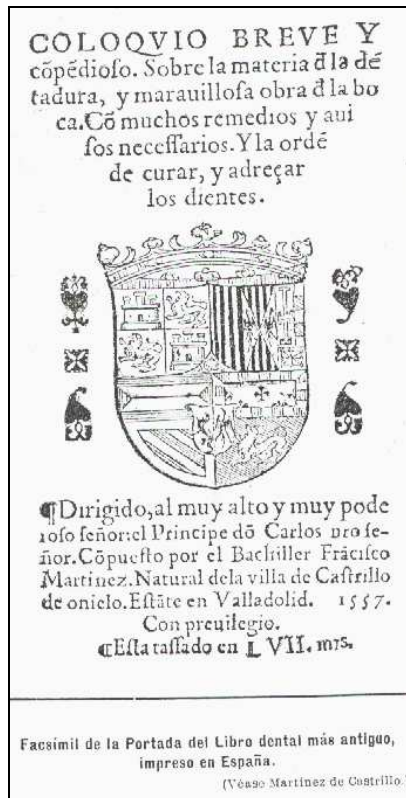 COLOQVIO BREVE Y
cõpẽdioſo. Sobre la materia đ la dẽ
tadura, y marauilloſa obra đ la bo
ca. Cõ muchos remedios y aui
ſos neceſſarios. Y la ordẽ
de curar, y adreçar
los dientes.
¶Dirigido, al muy alto y muy pode
roſo ſeñor: el Principe dõ Carlos nro ſe-
ñor. Cõpueſto por el Bachiller Frãciſco
Martinez. Natural dela villa de Caſtrillo
de onielo. Eſtãte en Valladolid. 1557.
Con preuilegio.
¶Eſta taſſado en L VII. mrs.
Facsímil de la Portada del Libro dental más antiguo,
impreso en España.
(Véase Martínez de Castrillo.)